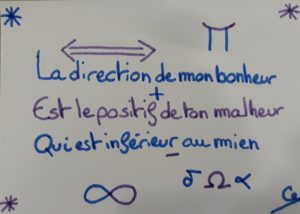 Π
La direction de mon bonheur
+
Est le positif de ton malheur
Qui est inférieur au mien
-
∞ δ Ω α